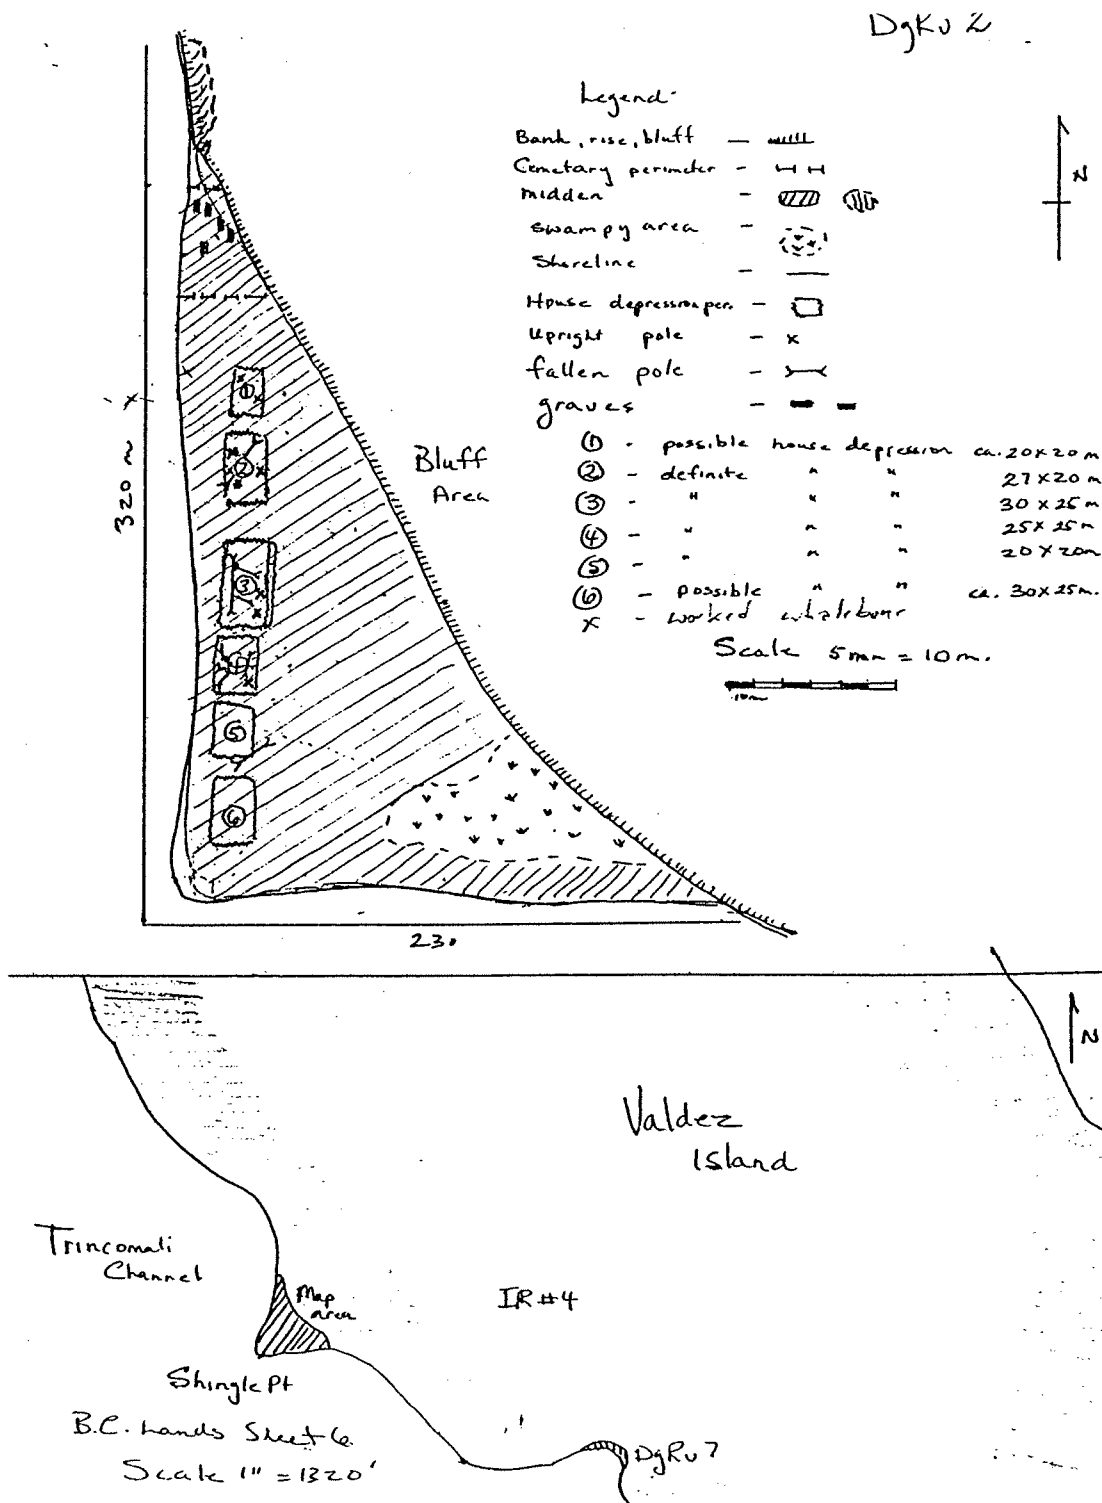 DgRv 2
Legend-
Bank, rise, bluff —
Cemetary perimeter -
midden -
swampy area -
Shoreline -
House depression per. -
Upright pole - x
fallen pole -
graves -
① - possible house depression ca. 20 x 20 m
② - definite " " 27 x 20 m
③ - " " " 30 x 25 m
④ - " " " 25 x 25 m
⑤ - " " " 20 x 20m
⑥ - possible " " ca. 30 x 25m.
x - worked whalebone
Scale 5mm = 10m.
10m
N
320 m
x
Bluff
Area
①
②
③
④
⑤
⑥
230
N
Valdez
Island
Trincomali
Channel
Map
area
IR #4
Shingle Pt
B.C. Lands Sheet 6
Scale 1" = 1320'
DgRv 7